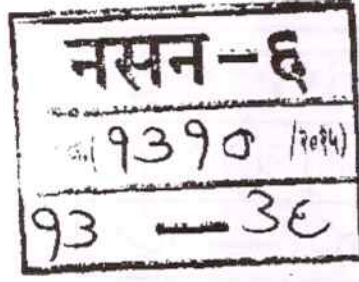 नसन - ६
(१३१० /२०१५)
१३ — ३६